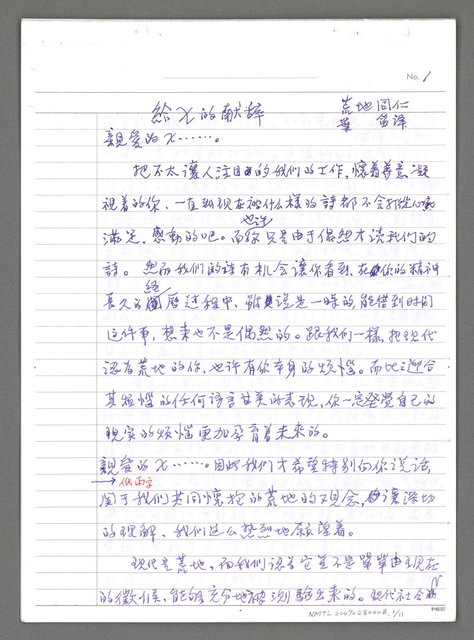 No. 1
給X的献辞
荒地同仁
葉 笛譯
親愛的X……。
把不太讓人注目的我們的工作,懷着善意凝
視着的你、一直到現在被什么樣的詩都不会打從心底
滿足、感動的吧。而你也许只是由于偶然才读我们的
詩。然而我們的詩有机会讓你看到,在你的精神
長久的經歷过程中,虽说是一時的,能借到时间
这件事,想來也不是偶然的。跟我们一樣,把现代
认为荒地的你,也许有你本身的烦惱。而比迎合
其烦惱的任何语言甘美的表现,你一定發覺自己的
现实的烦惱更加孕育着未来的。
親愛的X……。因此我们才希望特别向你说话
低兩字
関于我們共同懷抱的荒地的观念,讓深切
的理解、我们这么热烈地願望着。
现代是荒地,而我們认为它並不是單單由现在
的徵候,能够充分地被測驗出來的。现代社会的
NMTL20070280008, 1/11